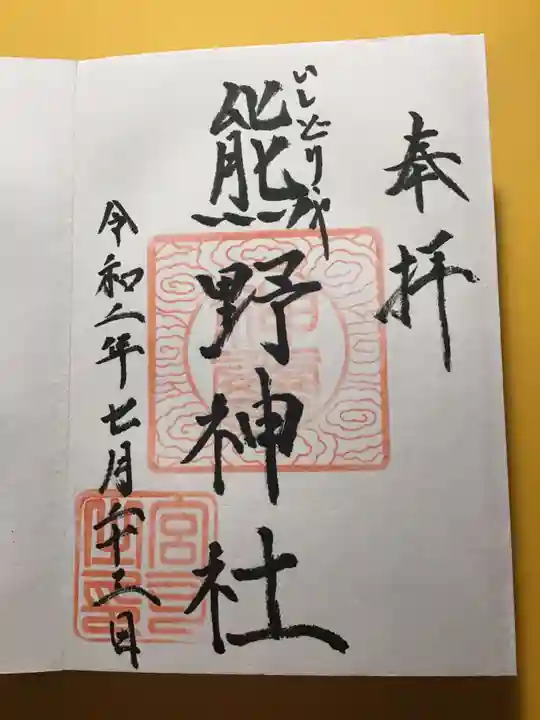 奉拝
いしどりが
熊野神社
令和二年七月二十三日